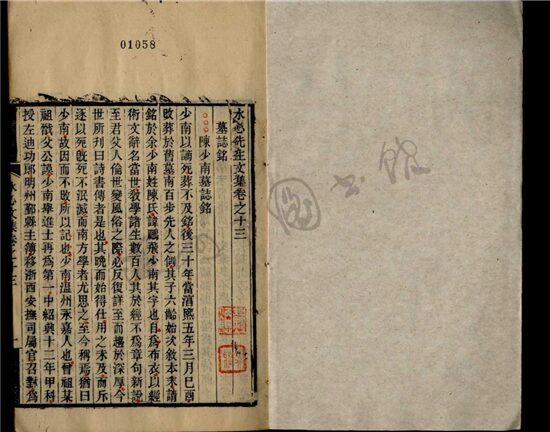 01058
水心先生文集卷之十三
墓誌銘
陳少南墓誌銘
少南以謫死葬不及銘後三十年當淳熙五年三月己酉
改葬於舊墓南百步先人之側其子六齡始次敘本末來請
銘於余少南姓陳氏諱鵬飛少南其字也自為布衣以經
術文辭名當世敎學諸生數百人其於經不為章句新說
至君父人倫世變風俗之際必反復詳至而趨於深厚今
世所刊曰詩書傳者是也其晚而始得仕用之未及而斥
逐以死旣死不泯滅而南方學者尤思之至今稱焉猶曰
少南故因而不改所以記也少南溫州永嘉人也曾祖某
祖戩父公誤少南舉進士再為第一中紹興十二年甲科
授左迪功郎明州鄞縣主簿移浙西安撫司屬官召對為
水心文集卷之十三